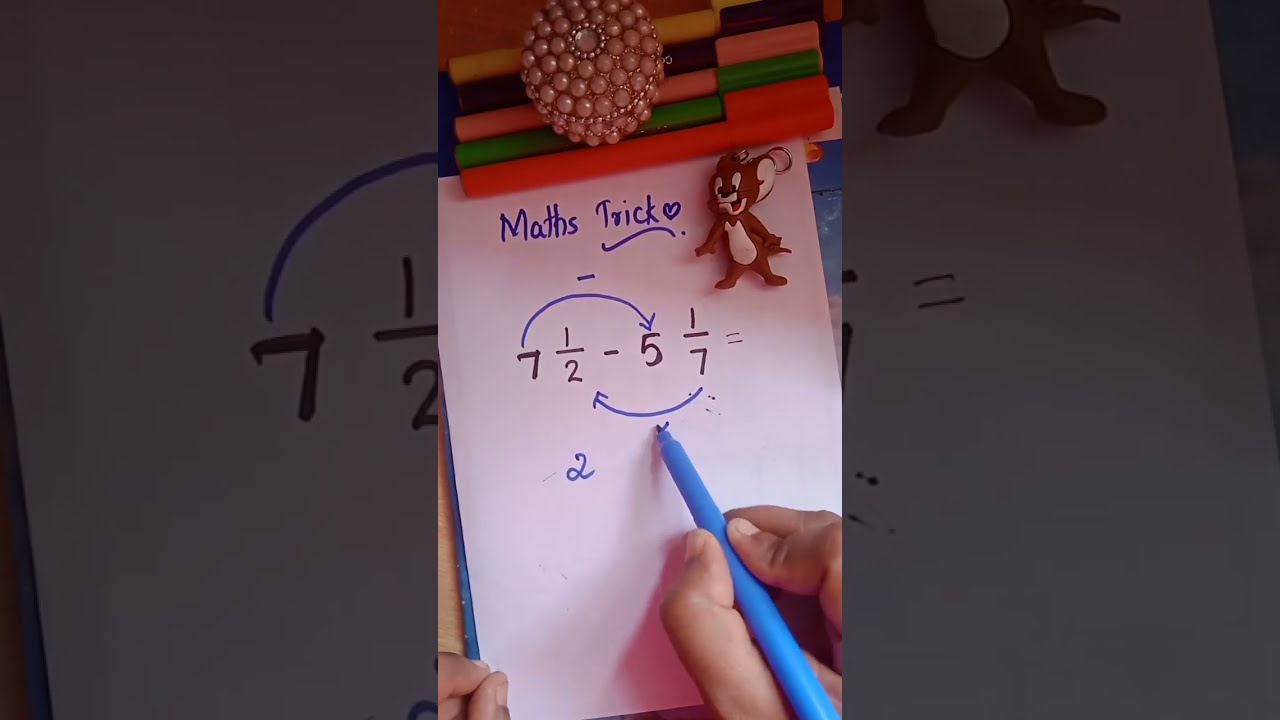 Maths Trick♡.
-
7 1/2 - 5 1/7 =
2